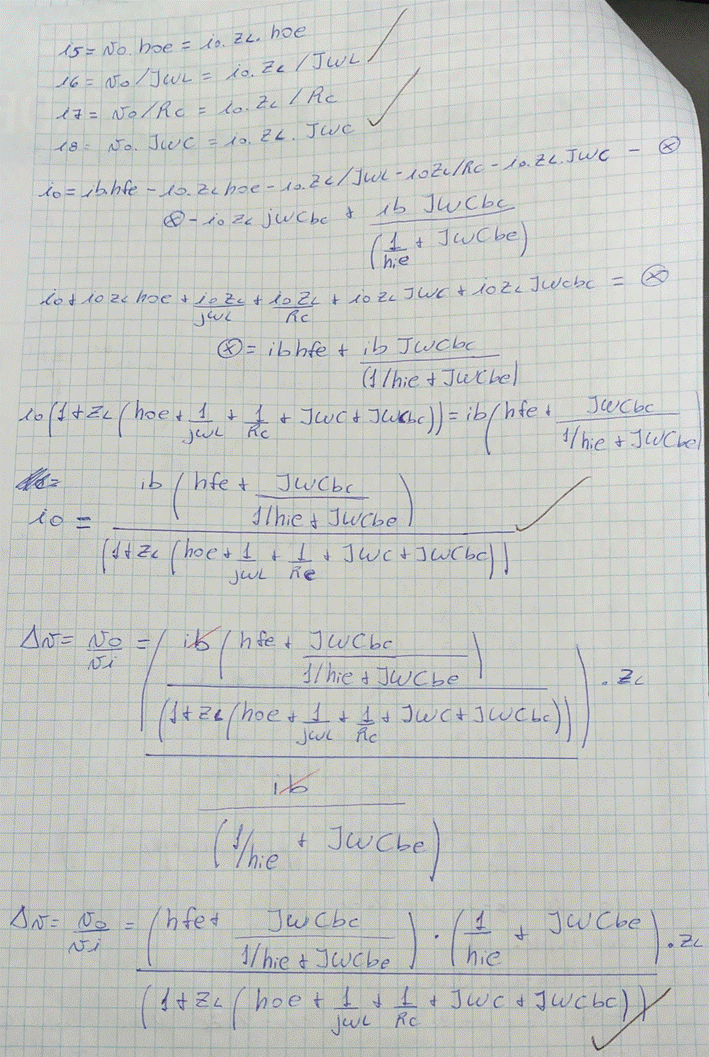 i5 = vo. hoe = io. ZL. hoe
i6 = vo/JWL = io. ZL / JWL
i7 = vo/Rc = io. ZL / Rc
i8 = vo. JWC = io. ZL. JWC
io = ib.hfe - io. ZL hoe - io. ZL/JWL - io ZL/Rc - io. ZL. JWC - ⊗
⊗ - io ZL jWCbc + ib JWCbc / (1/hie + JWCbe)
io + io ZL hoe + io ZL/jWL + io ZL/Rc + io ZL JWC + io ZL JWCbc = ⊗
⊗ = ib hfe + ib JWCbc / (1/hie + JWCbe)
io (1 + ZL (hoe + 1/jWL + 1/Rc + JWC + JWCbc)) = ib (hfe + JWCbc / 1/hie + JWCbe)
io = ib (hfe + JWCbc / 1/hie + JWCbe) / (1 + ZL (hoe + 1/jWL + 1/Rc + JWC + JWCbc))
Δv = vo/vi = (ib (hfe + JWCbc / 1/hie + JWCbe) / (1 + ZL (hoe + 1/jWL + 1/Rc + JWC + JWCbc))) . ZL / ib / (1/hie + JWCbe)
Δv = vo/vi = (hfe + JWCbc / 1/hie + JWCbe) . (1/hie + JWCbe) . ZL / (1 + ZL (hoe + 1/jWL + 1/Rc + JWC + JWCbc))